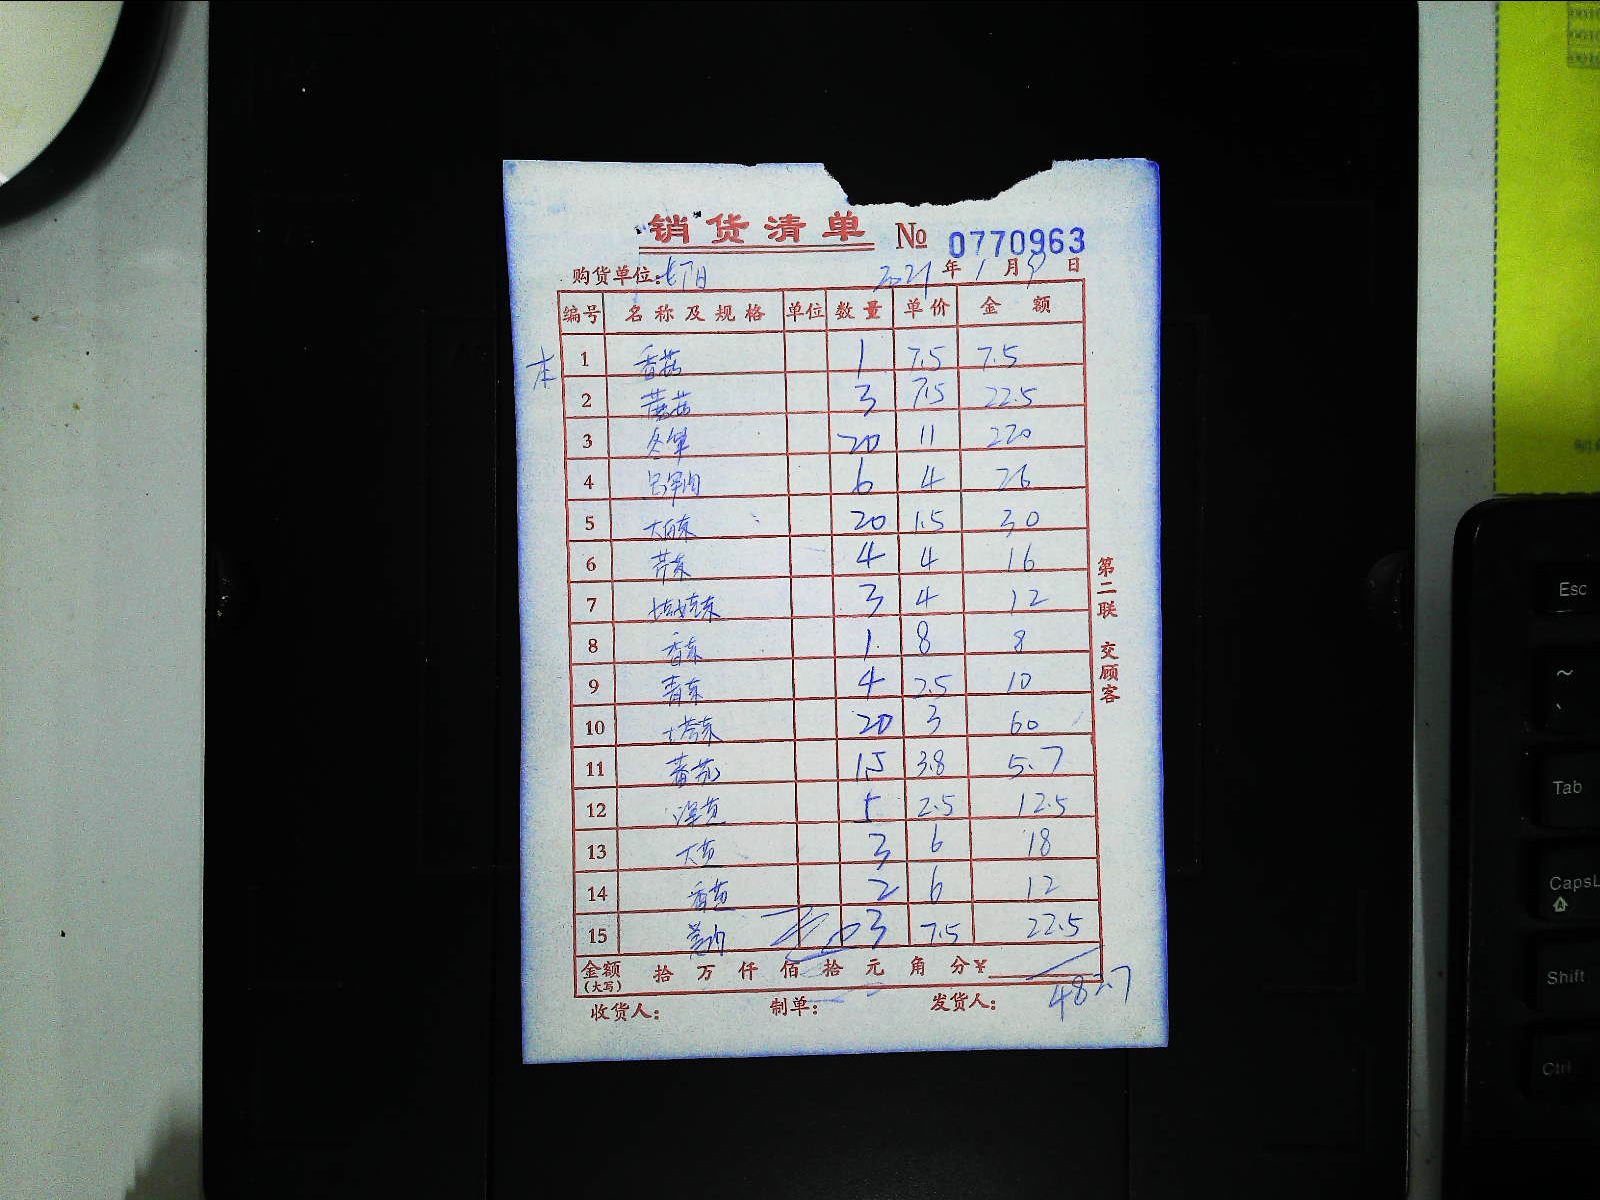 销货清单 № 0770963
购货单位: 2021年1月9日
编号 名称及规格 单位 数量 单价 金额
本
1 香菇 1 7.5 7.5
2 蘑菇 3 7.5 22.5
3 冬笋 20 11 220
4 6 4 26
5 大白菜 20 1.5 30
6 芹菜 4 4 16
7 3 4 12
8 香菜 1 8 8
9 青菜 4 2.5 10
10 塔菜 20 3 60
11 番茄 1.5 3.8 5.7
12 洋芋 5 2.5 12.5
13 大葱 3 6 18
14 香葱 2 6 12
15 3 7.5 22.5
金额 拾万仟佰拾元角分¥
(大写)
482.7
收货人: 制单: 发货人:
第二联 交顾客
Esc
~
、
Tab
CapsL
Shift
Ctrl